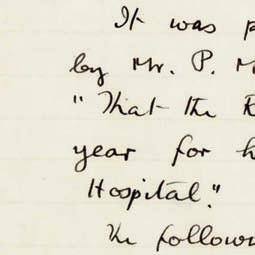 It was p
by Mr. P. M
"That the R
year for h
Hospital."
The followi